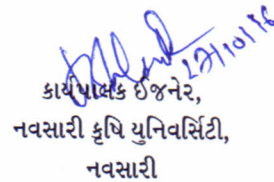 27/10/16
કાર્યપાલક ઈજનેર,
નવસારી કૃષિ યુનિવર્સિટી,
નવસારી